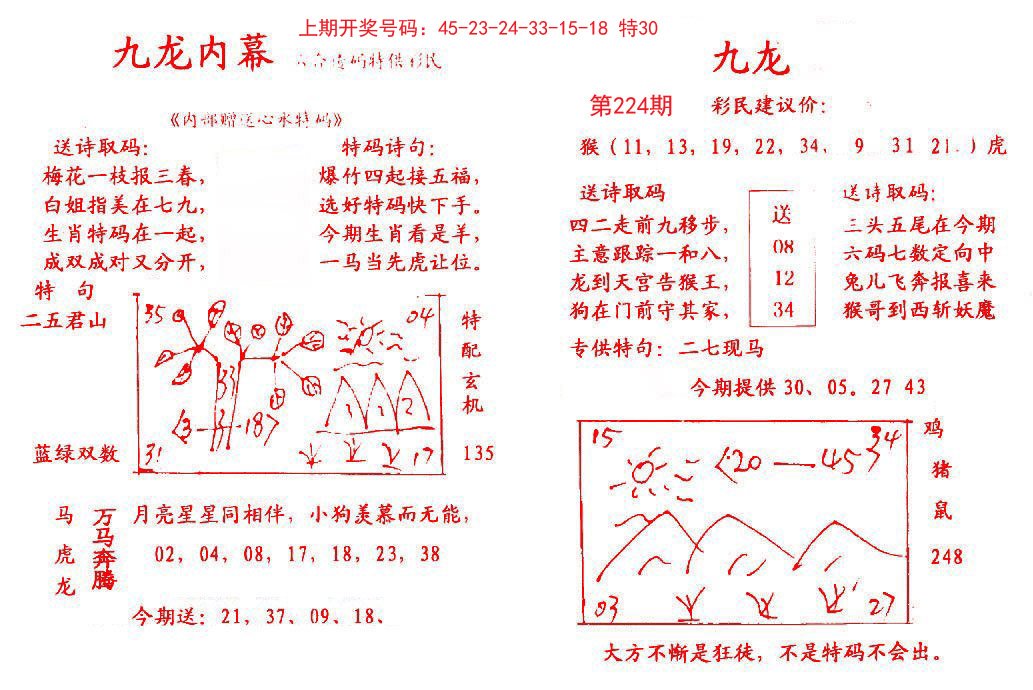 上期开奖号码：45-23-24-33-15-18 特30
九龙内幕
码特供彩民
《内部赠送心水特码》
送诗取码：
梅花一枝报三春，
白姐指美在七九，
生肖特码在一起，
成双成对又分开，
特码诗句：
爆竹四起接五福，
选好特码快下手。
今期生肖看是羊，
一马当先虎让位。
特 句
二五君山
蓝绿双数
35
04
33
13—3—187
1 1 2
31
17
特配玄机
135
马虎龙
万马奔腾
月亮星星同相伴，小狗羡慕而无能，
02，04，08，17，18，23，38
今期送：21、37、09、18、
九龙
第224期
彩民建议价：
猴（11，13，19，22，34， 9 31 21.）虎
送诗取码
四二走前九移步，
主意跟踪一和八，
龙到天宫告猴王，
狗在门前守其家，
送
08
12
34
送诗取码；
三头五尾在今期
六码七数定向中
兔儿飞奔报喜来
猴哥到西斩妖魔
专供特句：二七现马
今期提供 30、05。27 43
15
34
20—45
03
27
鸡
猪
鼠
248
大方不惭是狂徒，不是特码不会出。